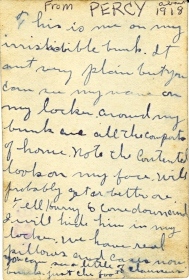 From PERCY 1918
This is me on my
irristidible bunk. It
aint very plain but you
can see my name on
my locker, around my
bunk are all the comforts
of home. Note the contented
look on my face. Will
probably get better one
Tell Harry to come down and
I will hide him in my
locker. We have real
pillows and covers now
you can see little of
just the foot